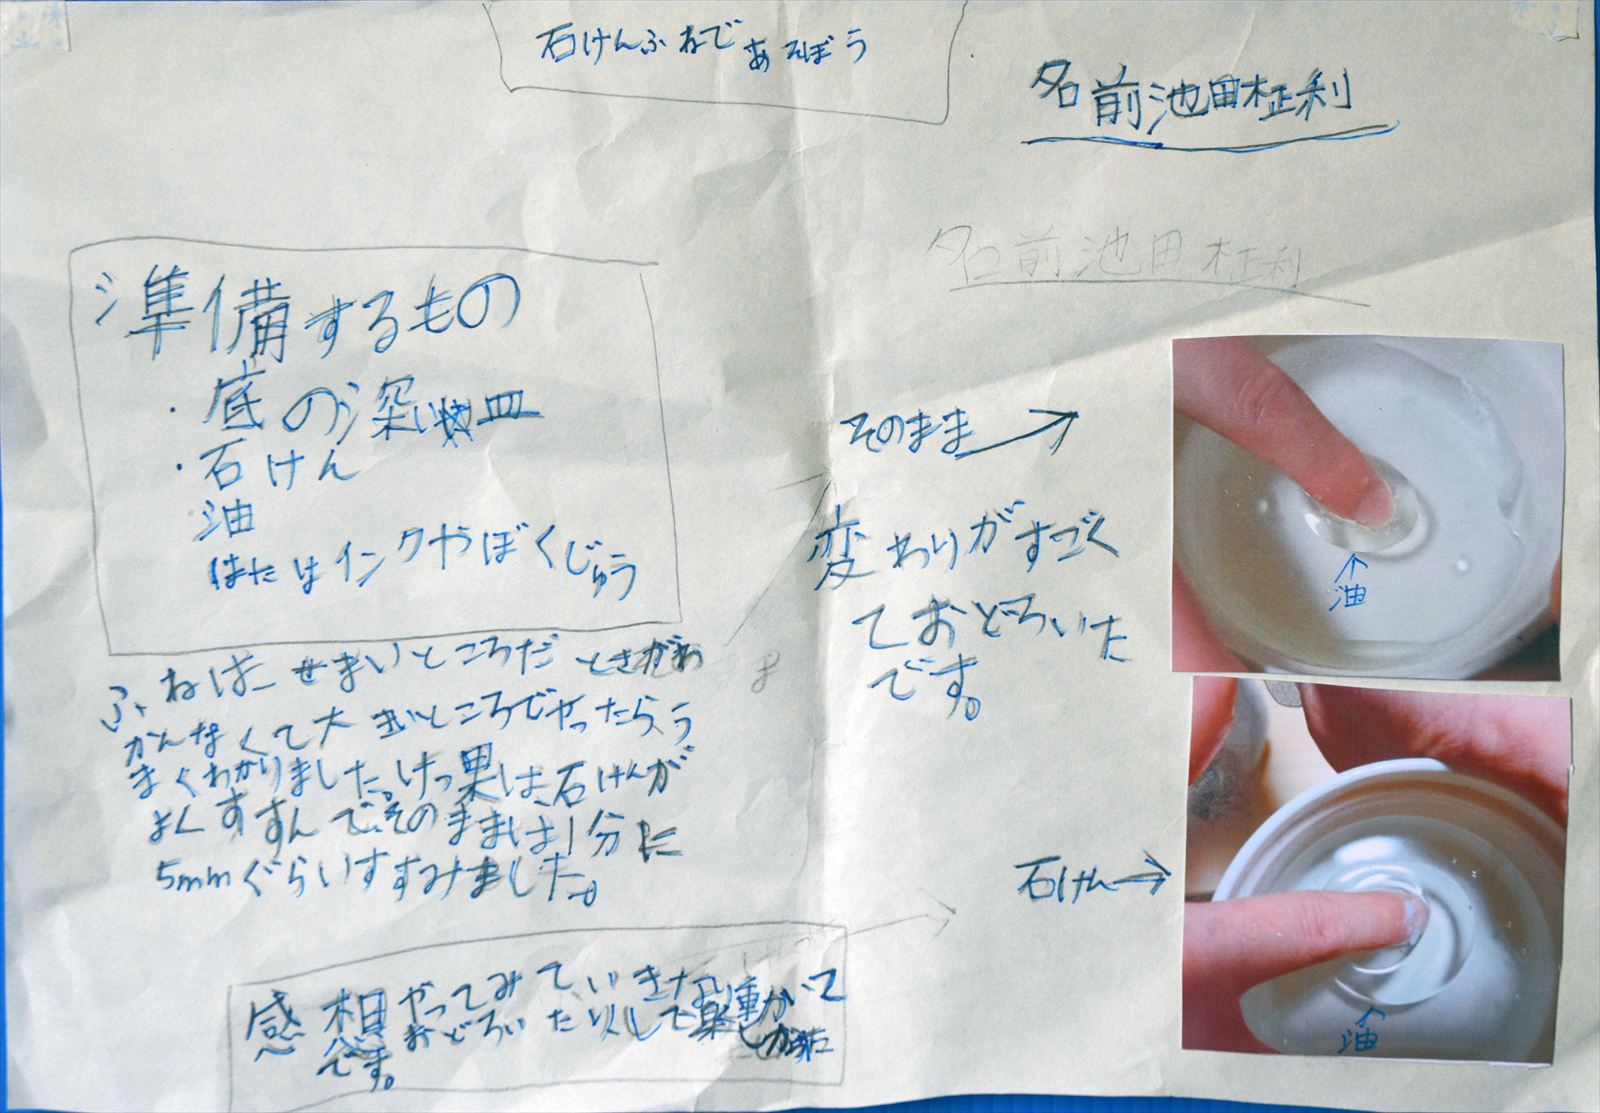 石けんふねであそぼう
名前池田柾利
名前池田柾利
準備するもの
・底の深い皿
・石けん
油
はたはインクやぼくじゅう
ふねは、せまいところだと
かんなくて大きいところでやったら、う
まくわかりました。けっ果は、石けんが
よくすすんで、そのままは1分に
5mmぐらいすすみました。
そのまま→
変わりがすごく
ておどろいた
です。
↑
油
石けん→
↑
油
感想 やってみていきなり動いて
おどろいたりして楽しかった
です。